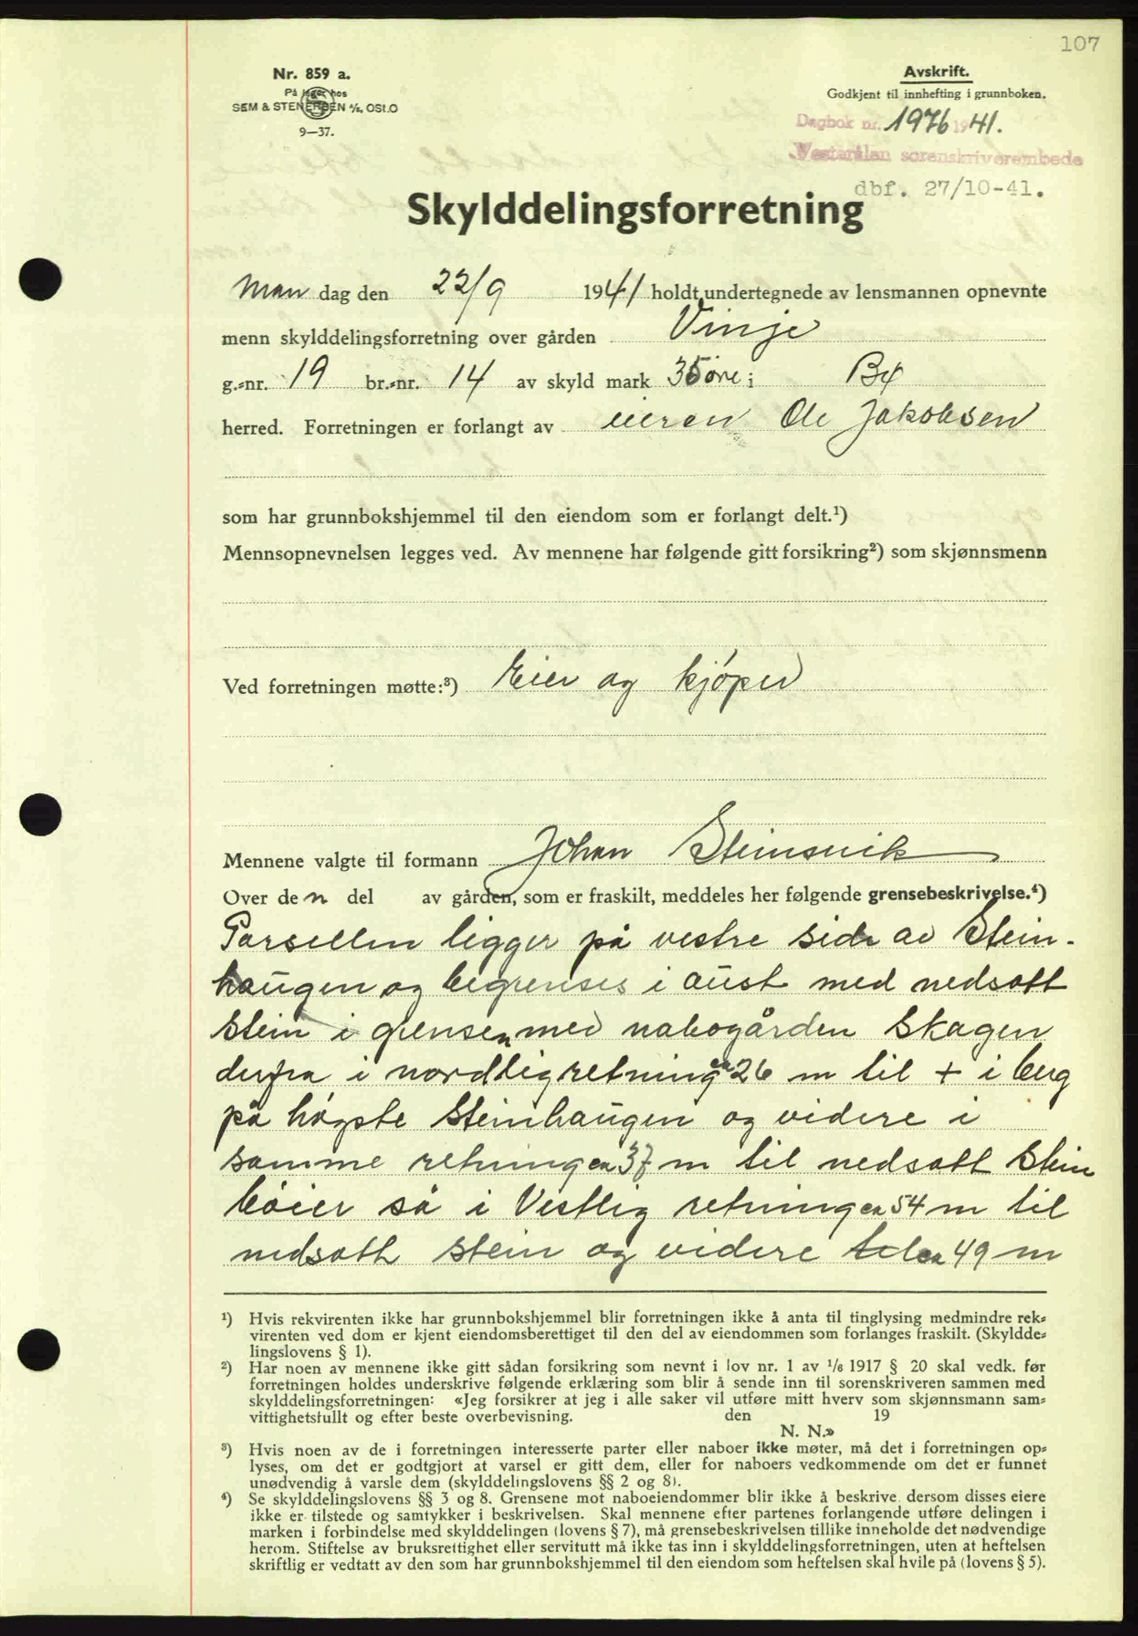 107
Nr. 859 a.
På lager hos
SEM & STENERSEN A/S, OSLO
9—37.
Avskrift.
Godkjent til innhefting i grunnboken.
Dagbok nr. 1976 1941.
Vesterålen sorenskriverembede
dbf. 27/10-41.
Skylddelingsforretning
Man dag den 22/9 1941 holdt undertegnede av lensmannen opnevnte
menn skylddelingsforretning over gården Vinje
g.-nr. 19 br.-nr. 14 av skyld mark 35 øre i Bø
herred. Forretningen er forlangt av eieren Ole Jakobsen
som har grunnbokshjemmel til den eiendom som er forlangt delt.¹)
Mennsopnevnelsen legges ved. Av mennene har følgende gitt forsikring²) som skjønnsmenn
Ved forretningen møtte:³) Eier og kjøper
Mennene valgte til formann Johan Steinsvik
Over den del av gården, som er fraskilt, meddeles her følgende grensebeskrivelse.⁴)
Parsellen ligger på vestre side av Stein-
haugen og begrenses i aust med nedsatt
stein i grensen med nabogården Skagen
derfra i nordligretning ca 26 m til + i berg
på høgste Steinhaugen og videre i
samme retning ca 37 m til nedsatt stein
bøier så i Vestlig retning ca 54 m til
nedsatt stein og videre ca 49 m
¹) Hvis rekvirenten ikke har grunnbokshjemmel blir forretningen ikke å anta til tinglysing medmindre rek-
virenten ved dom er kjent eiendomsberettiget til den del av eiendommen som forlanges fraskilt. (Skyldde-
lingslovens § 1).
²) Har noen av mennene ikke gitt sådan forsikring som nevnt i lov nr. 1 av 1/6 1917 § 20 skal vedk. før
forretningen holdes underskrive følgende erklæring som blir å sende inn til sorenskriveren sammen med
skylddelingsforretningen: «Jeg forsikrer at jeg i alle saker vil utføre mitt hverv som skjønnsmann sam-
vittighetsfullt og efter beste overbevisning. den 19
N. N.»
³) Hvis noen av de i forretningen interesserte parter eller naboer ikke møter, må det i forretningen op-
lyses, om det er godtgjort at varsel er gitt dem, eller for naboers vedkommende om det er funnet
unødvendig å varsle dem (skylddelingslovens §§ 2 og 8).
⁴) Se skylddelingslovens §§ 3 og 8. Grensene mot naboeiendommer blir ikke å beskrive dersom disses eiere
ikke er tilstede og samtykker i beskrivelsen. Skal mennene efter partenes forlangende utføre delingen i
marken i forbindelse med skylddelingen (lovens § 7), må grensebeskrivelsen tillike inneholde det nødvendige
herom. Stiftelse av bruksrettighet eller servitutt må ikke tas inn i skylddelingsforretningen, uten at heftelsen
skriftlig er vedtatt av den som har grunnbokshjemmel til den eiendom som heftelsen skal hvile på (lovens § 5).